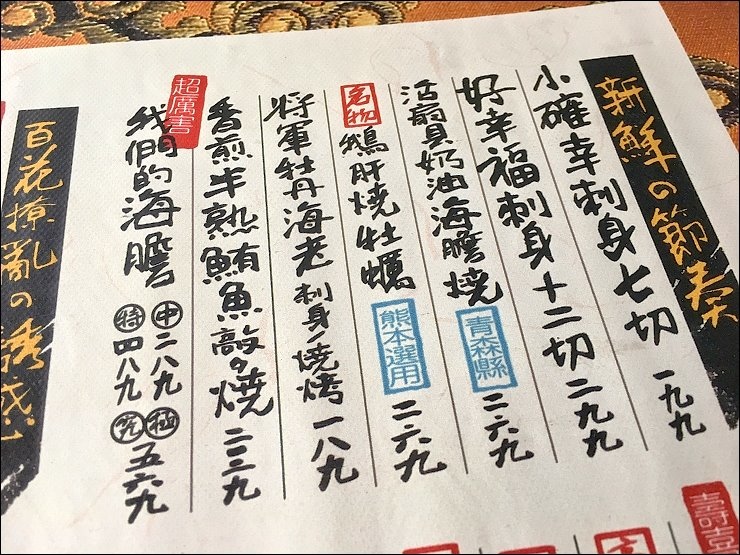 新鮮の節奏
小確幸刺身七切 一九九
好幸福刺身十二切 二九九
活扇貝奶油海膽燒 青森縣 二六九
名物 鵝肝燒牡蠣 熊本選用 二六九
將軍牡丹海老刺身/燒烤 一八九
香煎半熟鮪魚敲の燒 二三九
超厲害
我們的海膽 中二八九 特四八九 極五六九
百花撩亂の誘惑
壽喜